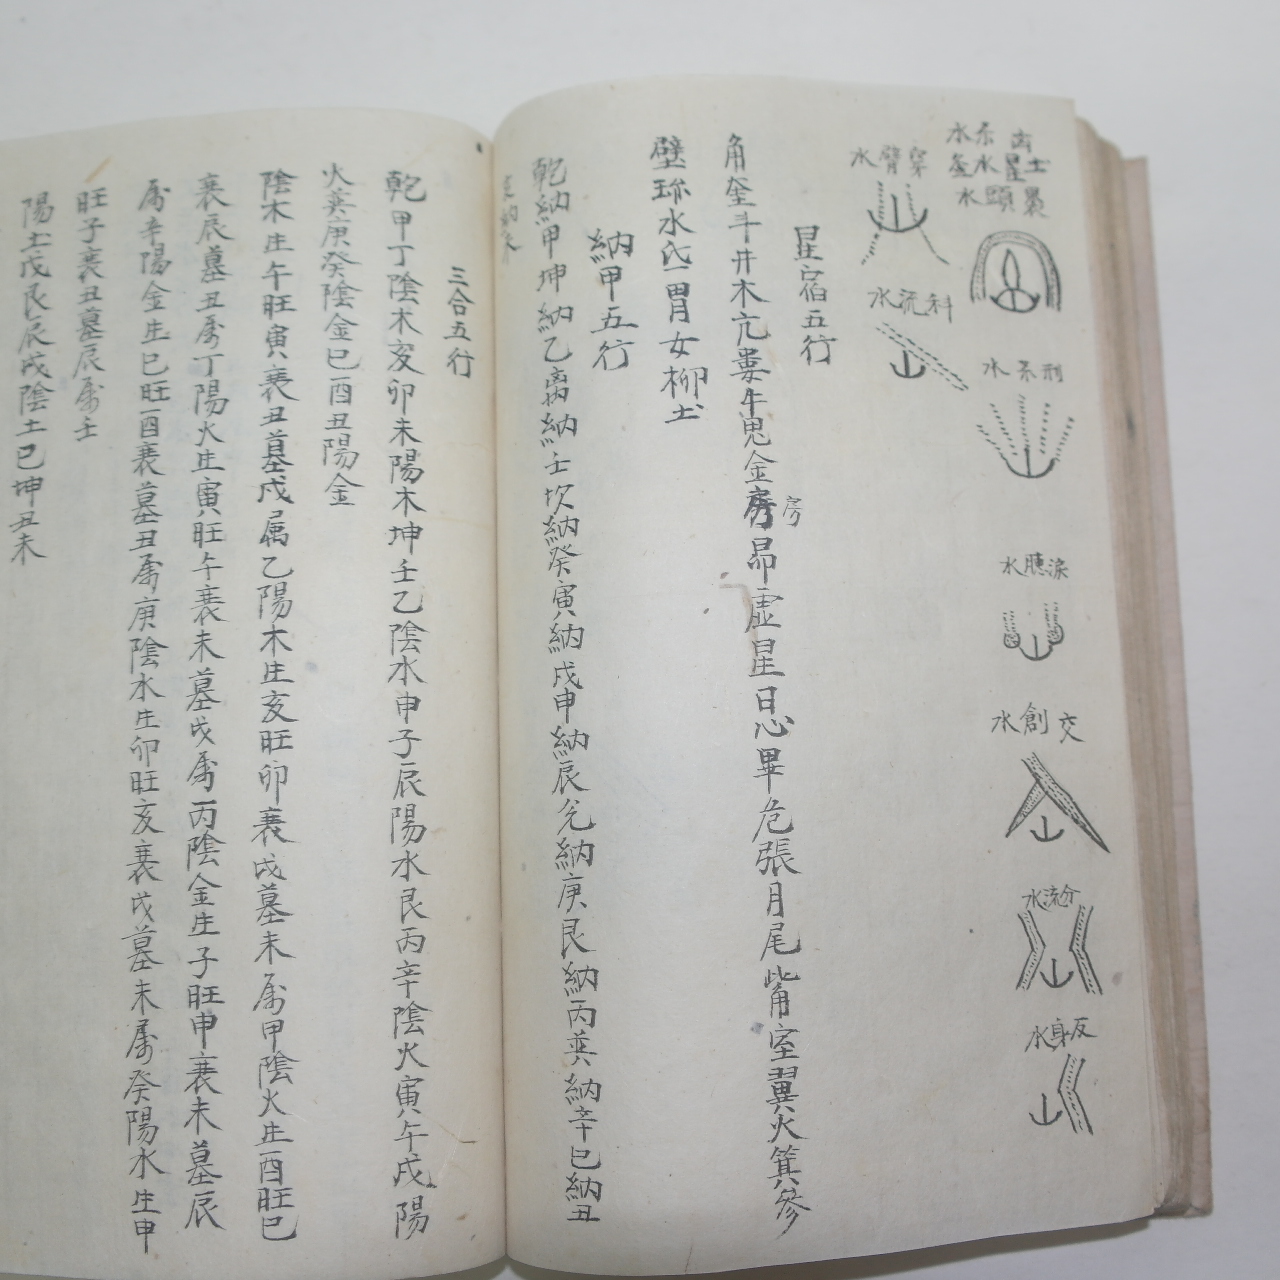 裹頭水
刑系水
淚聽水
交創水
分流水
反身水
穿臂水
斜流水
星宿五行
角奎斗井木亢婁牛鬼金房昴虛星日心畢危張月尾觜室翼火箕參
房
壁珎水氐胃女柳土
納甲五行
乾納甲坤納乙离納壬坎納癸寅納戌申納辰兌納庚艮納丙巽納辛巳納丑
亥納未
三合五行
乾甲丁陰木亥卯未陽木坤壬乙陰水申子辰陽水艮丙辛陰火寅午戌陽
火巽庚癸陰金巳酉丑陽金
陰木生午旺寅衰丑墓戌属乙陽木生亥旺卯衰戌墓未属甲陰火生酉旺巳
衰辰墓丑属丁陽火生寅旺午衰未墓戌属丙陰金生子旺申衰未墓辰
属辛陽金生巳旺酉衰墓丑属庚陰水生卯旺亥衰戌墓未属癸陽水生申
旺子衰丑墓辰属壬
陽土戊艮辰戌陰土己坤丑未